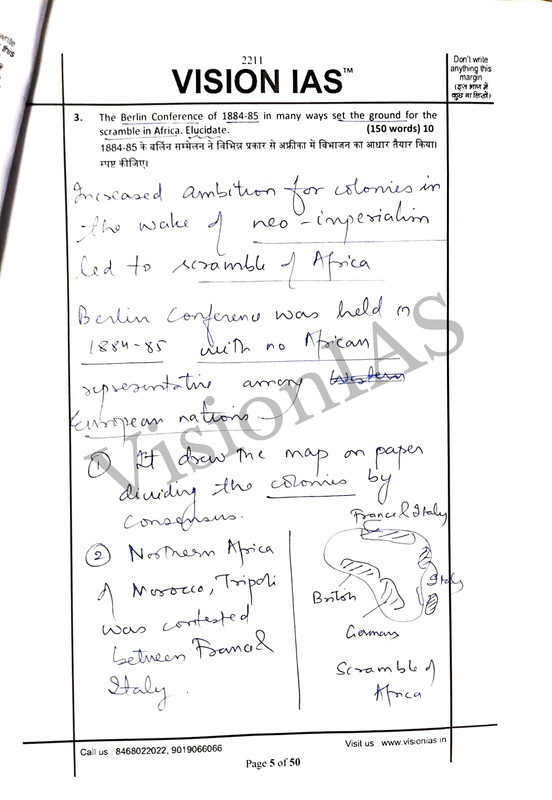 2211
VISION IAS™
Don't write
anything this
margin
(इस भाग में
कुछ ना लिखें)
3. The Berlin Conference of 1884-85 in many ways set the ground for the
scramble in Africa. Elucidate. (150 words) 10
1884-85 के बर्लिन सम्मेलन ने विभिन्न प्रकार से अफ्रीका में विभाजन का आधार तैयार किया।
स्पष्ट कीजिए।
Increased ambition for colonies in
the wake of neo-imperialism
led to scramble of Africa
Berlin Conference was held in
1884-85 with no African
representative among
European nations
① It drew the map on paper
dividing the colonies by
consensus.
② Northern Africa
of Morocco, Tripoli
was contested
between France &
Italy.
France & Italy
Italy
British
Germany
Scramble of
Africa
VisionIAS
Call us : 8468022022, 9019066066
Visit us : www.visionias.in
Page 5 of 50